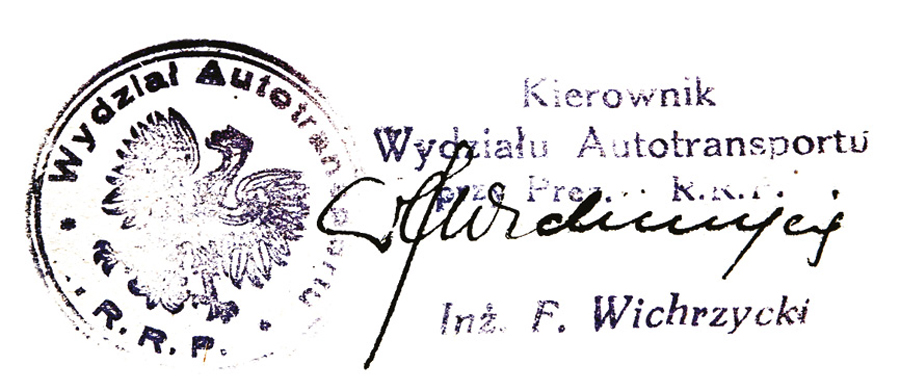 Wydział Autotran
R. R. P.
Kierownik
Wydziału Autotransportu
Prez. R.R.P.
Inż. F. Wichrzycki